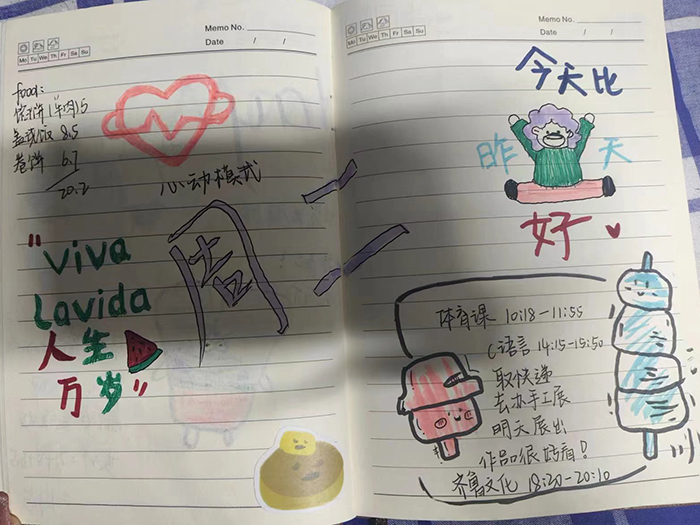 Memo No.
Mo Tu We Th Fr Sa Su
Date / /
food:
馅饼(牛肉)5
盖浇饭 8.5
卷饼 6.7
20.2
心动模式
"viva
Lavida
人生
万岁"
周二
Memo No.
Mo Tu We Th Fr Sa Su
Date / /
今天比
昨天
好
体育课 10:18-11:55
C语言 14:15-15:50
取快递
去办手工展
明天展出
作品很好看!
齐鲁文化 18:20-20:10